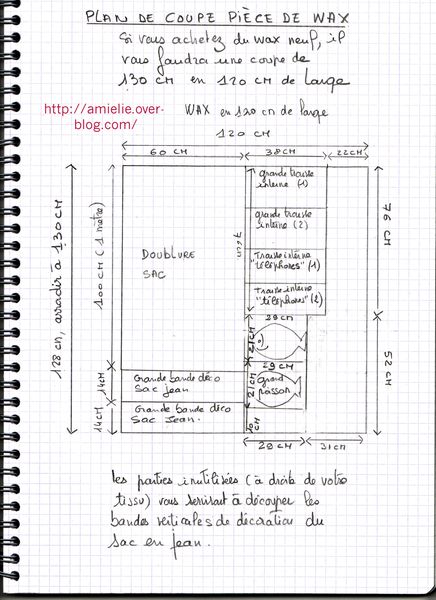 PLAN DE COUPE PIÈCE DE WAX
Si vous achetez du wax neuf, il
vous faudra une coupe de
130 CM en 120 cm de large
http://amielie.over-
blog.com/
WAX en 120 cm de large
120 CM
60 CM
38CM
22CM
grande trousse
interne (1)
grande trousse
interne (2)
Trousse interne
"téléphones" (1)
Trousse interne
"téléphones" (2)
76 CM
DOUBLURE
SAC
100CM (1 mètre)
128 cm, arrondir à 130CM
28cm
21CM
52 CM
29CM
Grande bande déco
Sac jean
14CM
21CM
grand
poisson
Grande bande déco
Sac Jean.
14CM
10CM
29CM
31CM
Les parties inutilisées (à droite de votre
tissu) vous serviront à découper les
bandes verticales de décoration du
sac en jean.